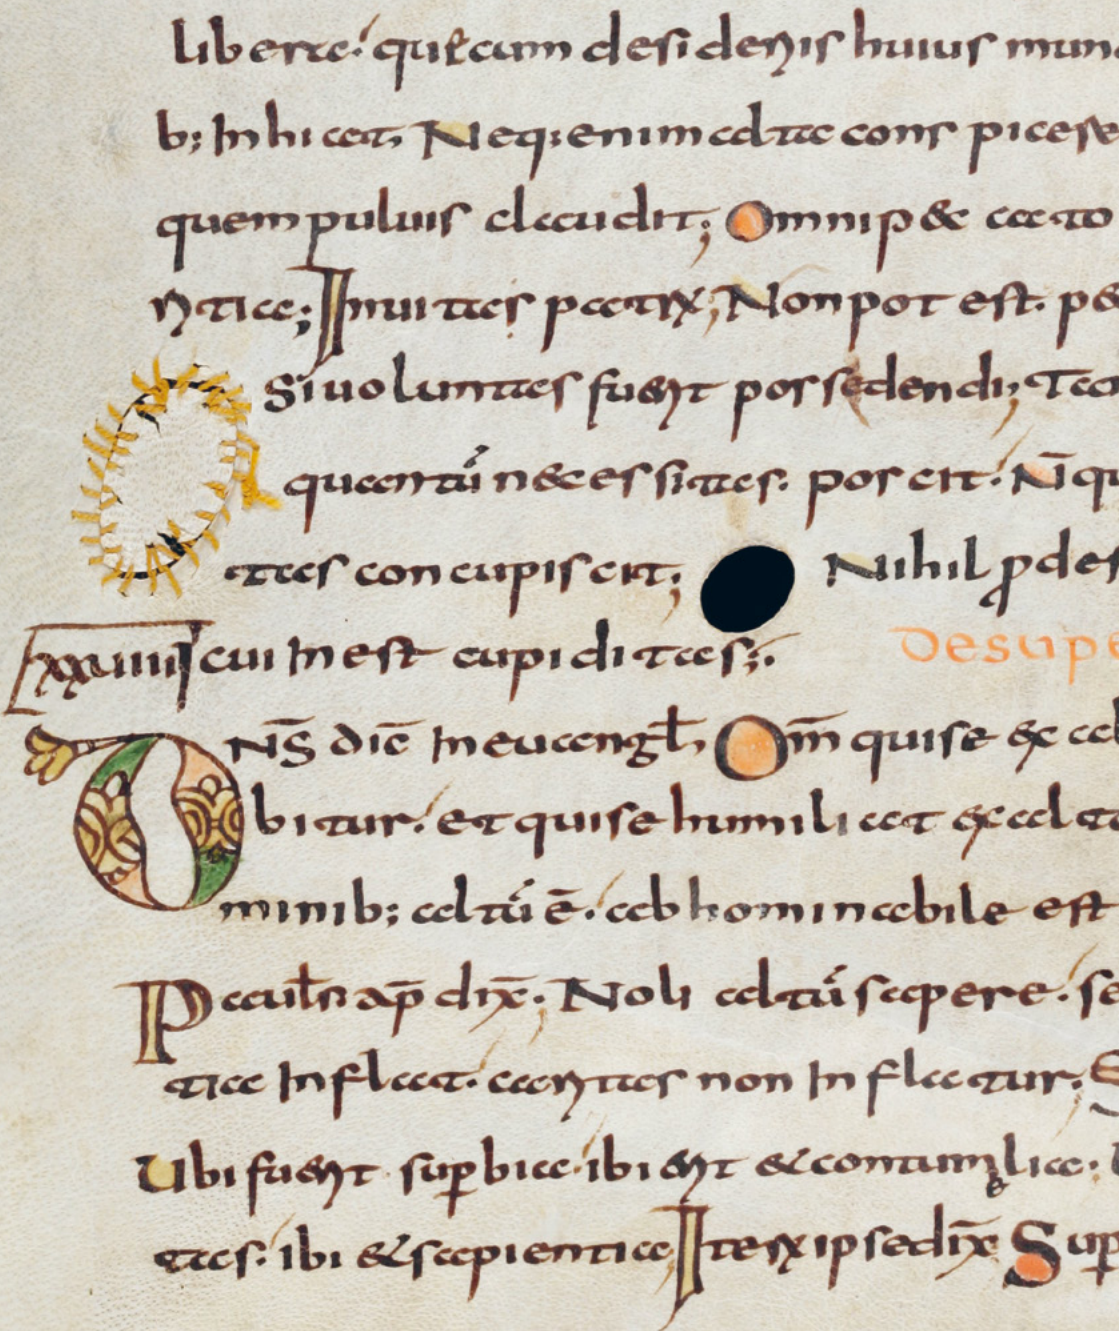 libera&#x27; qui cum desideriis huius mun
b; inhiat; Neq; enim alta conspicere
quem puluis claudit; Omnip& aeto
ntia; Inuitas patrix; Non pot est. p&
si uoluntas fuerit possedendi; Ta
quantū n&essitas. poscit. N̄ qu
tas concupiscit; Nihil ꝓdes
Lxxuiiii cui inest cupiditas;. Desupe
DN̄S dic̄ in euangƚ; Om̄ quise exal
bitur. et quise humiliat exalta
minib; altū ē. abhominabile est
Pauƚ ap̄ dix̄; Noli altū sapere. se
tia inflat. caritas non inflatur; S
Ubi fuerit suꝑbia. ibi erit &contumelia;
tas. ibi &sapientia Iterx ipse dix̄ Suꝑ